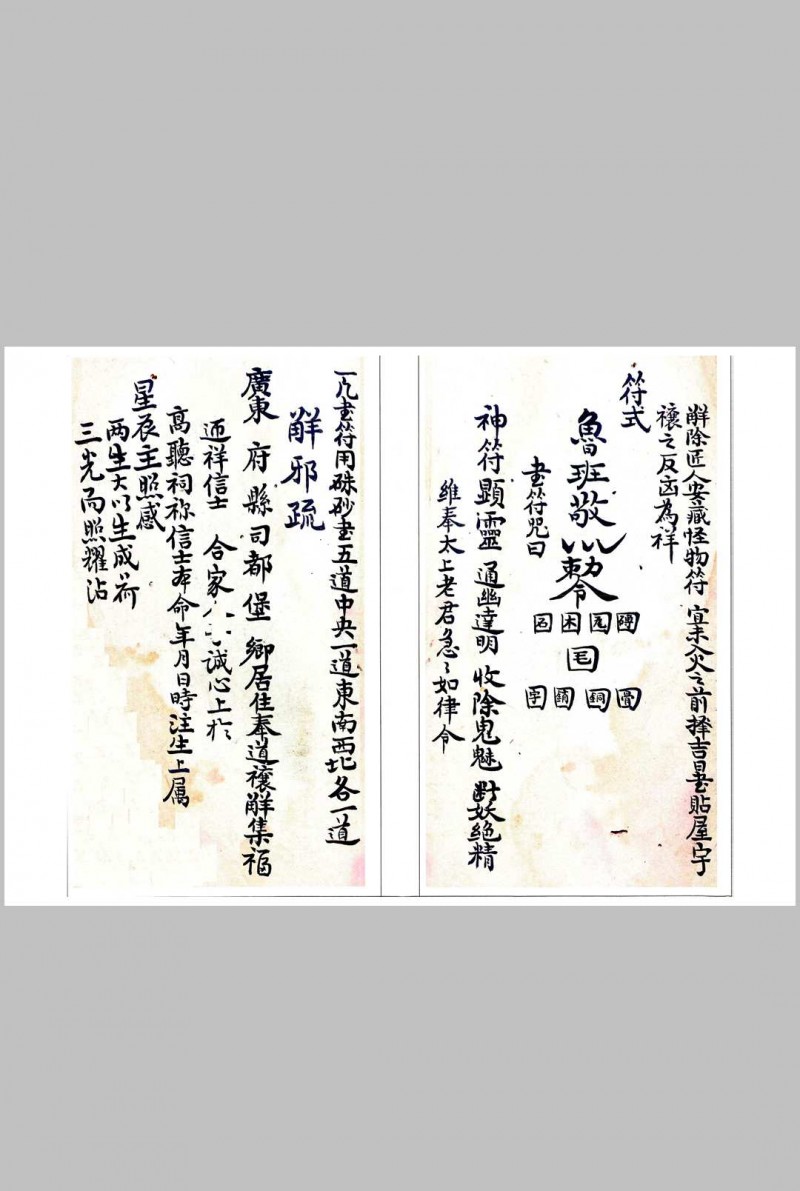 解除匠人安藏怪物符 宜未入火之前擇吉日書貼屋宇
禳之反凶為祥
符式
魯班敬 勅令
石 木 瓦 磚
毛
字 銅 膏
書符咒曰
神符顯靈 通幽達明 收除鬼魅 斷妖絕精
維奉太上老君急〻如律令
一凡書符用硃砂書五道中央一道東南西北各一道
解邪疏
廣東 府 縣 司 都 堡 鄉居住奉道禳解集福
迎祥信士 合家 誠心上於
高聽祠祢信士本命年月日時注生上属
星辰主照感
两生大以生成荷
三光而照耀沾